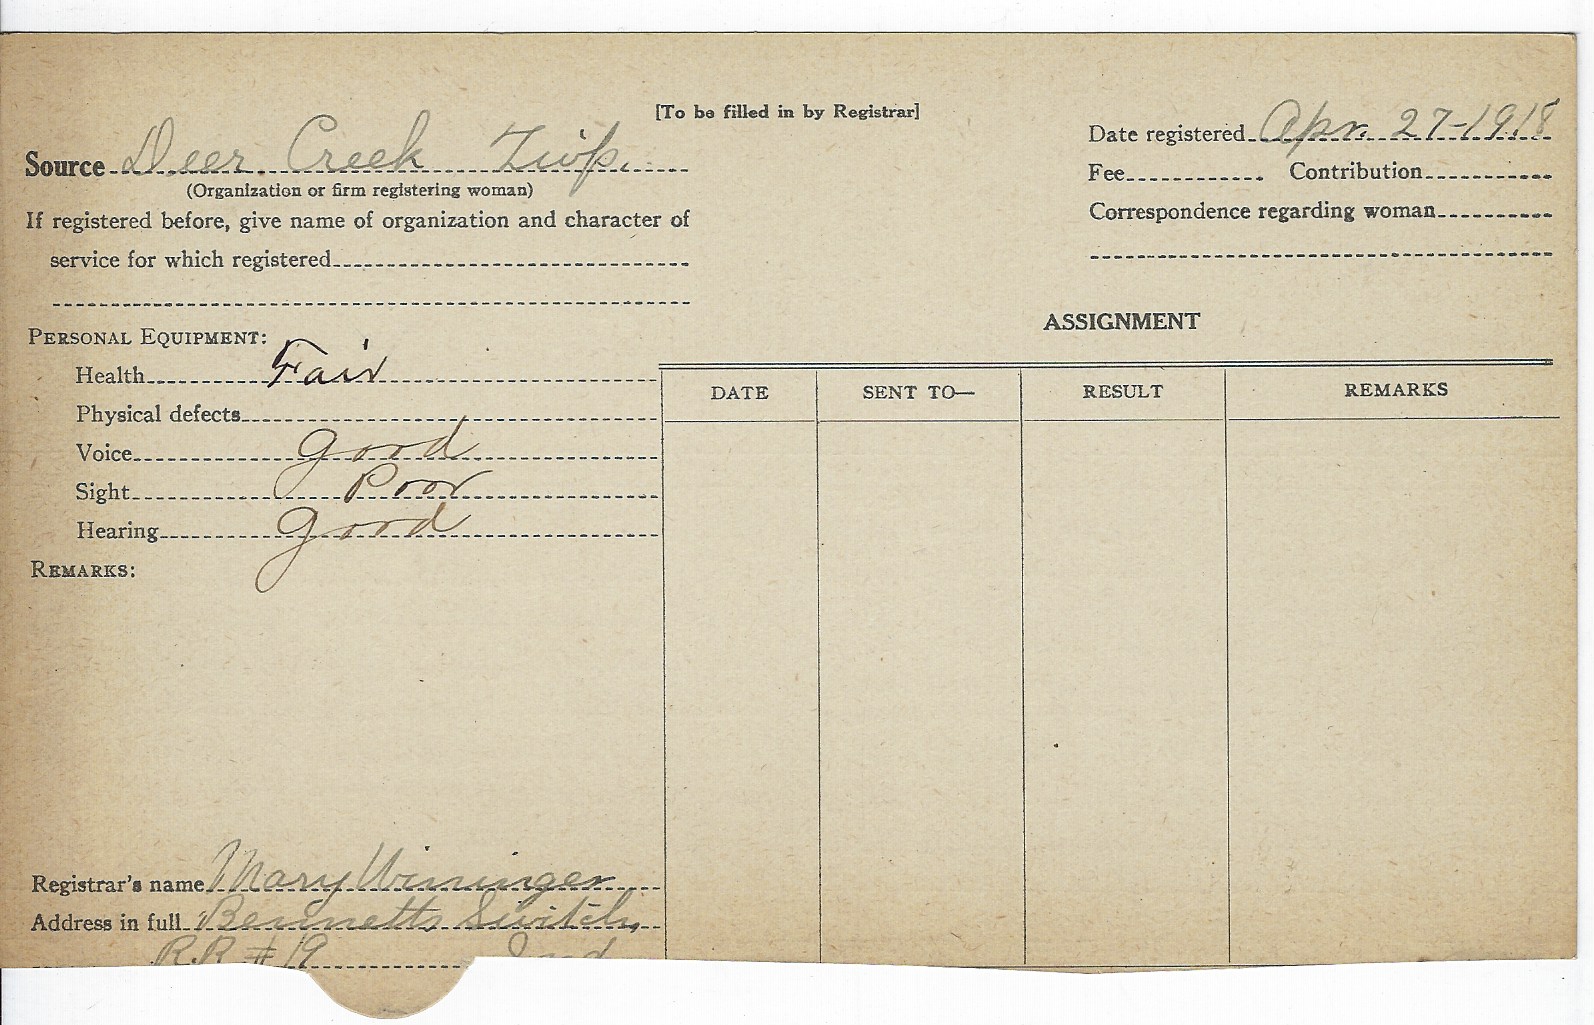 [To be filled in by Registrar]
Source Deer Creek Twp.
(Organization or firm registering woman)
If registered before, give name of organization and character of
service for which registered
Date registered Apr. 27-1918
Fee Contribution
Correspondence regarding woman
PERSONAL EQUIPMENT:
Health Fair
Physical defects
Voice good
Sight Poor
Hearing good
REMARKS:
ASSIGNMENT
DATE SENT TO— RESULT REMARKS
Registrar's name Mary Wininger
Address in full Bennetts Switch,
R.R. # 19 Ind